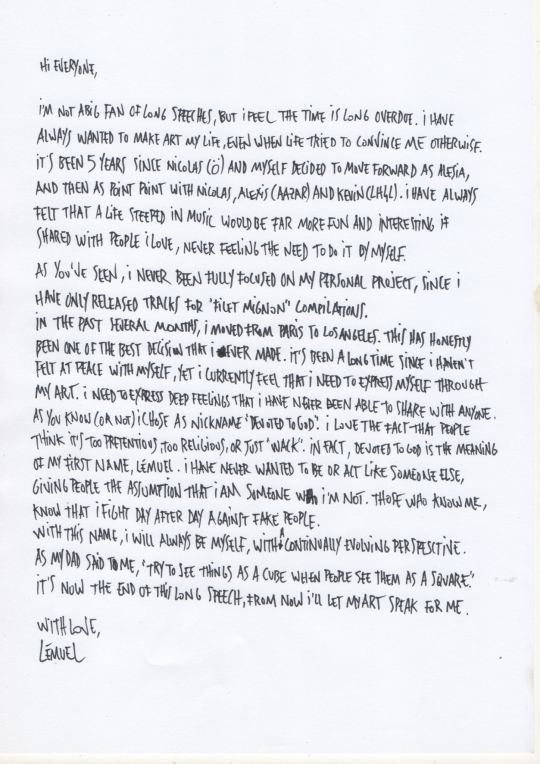 Hi EVERYONE,
i'M NOT A BIG FAN OF LONG SPEECHES, BUT i FEEL THE TIME IS LONG OVERDUE. i HAVE
ALWAYS WANTED TO MAKE ART MY LIFE, EVEN WHEN LIFE TRIED TO CONVINCE ME OTHERWISE.
iT'S BEEN 5 YEARS SINCE NICOLAS (Ö) AND MYSELF DECIDED TO MOVE FORWARD AS ALESIA,
AND THEN AS POINT POINT WITH NICOLAS, ALEXIS (AAZAR) AND KEVIN (LH4L). i HAVE ALWAYS
FELT THAT A LIFE STEEPED IN MUSIC WOULD BE FAR MORE FUN AND INTERESTING IF
SHARED WITH PEOPLE i LOVE, NEVER FEELING THE NEED TO DO IT BY MYSELF.
AS YOU'VE SEEN, i NEVER BEEN FULLY FOCUSED ON MY PERSONAL PROJECT, SINCE i
HAVE ONLY RELEASED TRACKS FOR "FILET MIGNON" COMPILATIONS.
IN THE PAST SEVERAL MONTHS, i MOVED FROM PARIS TO LOS ANGELES. THIS HAS HONESTLY
BEEN ONE OF THE BEST DECISION THAT i EVER MADE. iT'S BEEN A LONG TIME SINCE i HAVEN'T
FELT AT PEACE WITH MYSELF, YET i CURRENTLY FEEL THAT i NEED TO EXPRESS MYSELF THROUGH
MY ART. i NEED TO EXPRESS DEEP FEELINGS THAT i HAVE NEVER BEEN ABLE TO SHARE WITH ANYONE.
AS YOU KNOW (OR NOT) i CHOSE AS NICKNAME "DEVOTED TO GOD". i LOVE THE FACT THAT PEOPLE
THINK IT'S TOO PRETENTIOUS, TOO RELIGIOUS, OR JUST "WACK". IN FACT, DEVOTED TO GOD IS THE MEANING
OF MY FIRST NAME, LÉMUEL. i HAVE NEVER WANTED TO BE OR ACT LIKE SOMEONE ELSE,
GIVING PEOPLE THE ASSUMPTION THAT i AM SOMEONE i'M NOT. THOSE WHO KNOW ME,
KNOW THAT i FIGHT DAY AFTER DAY AGAINST FAKE PEOPLE.
WITH THIS NAME, i WILL ALWAYS BE MYSELF, WITH A CONTINUALLY EVOLVING PERSPECTIVE.
AS MY DAD SAID TO ME, "TRY TO SEE THINGS AS A CUBE WHEN PEOPLE SEE THEM AS A SQUARE."
iT'S NOW THE END OF THIS LONG SPEECH, FROM NOW i'LL LET MY ART SPEAK FOR ME.
WITH LOVE,
LÉMUEL